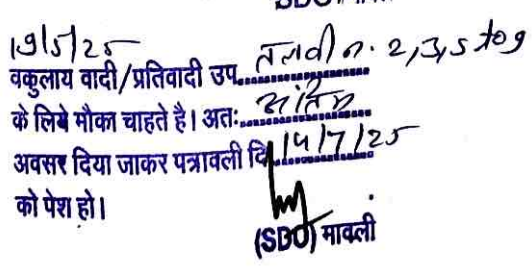 SDO मावली
19/5/25
वकुलाय वादी/प्रतिवादी उप. तलवी न. 2,3,5 to 9
के लिये मौका चाहते है। अतः अंतिम
अवसर दिया जाकर पत्रावली दि. 14/7/25
को पेश हो।
(SDO) मावली